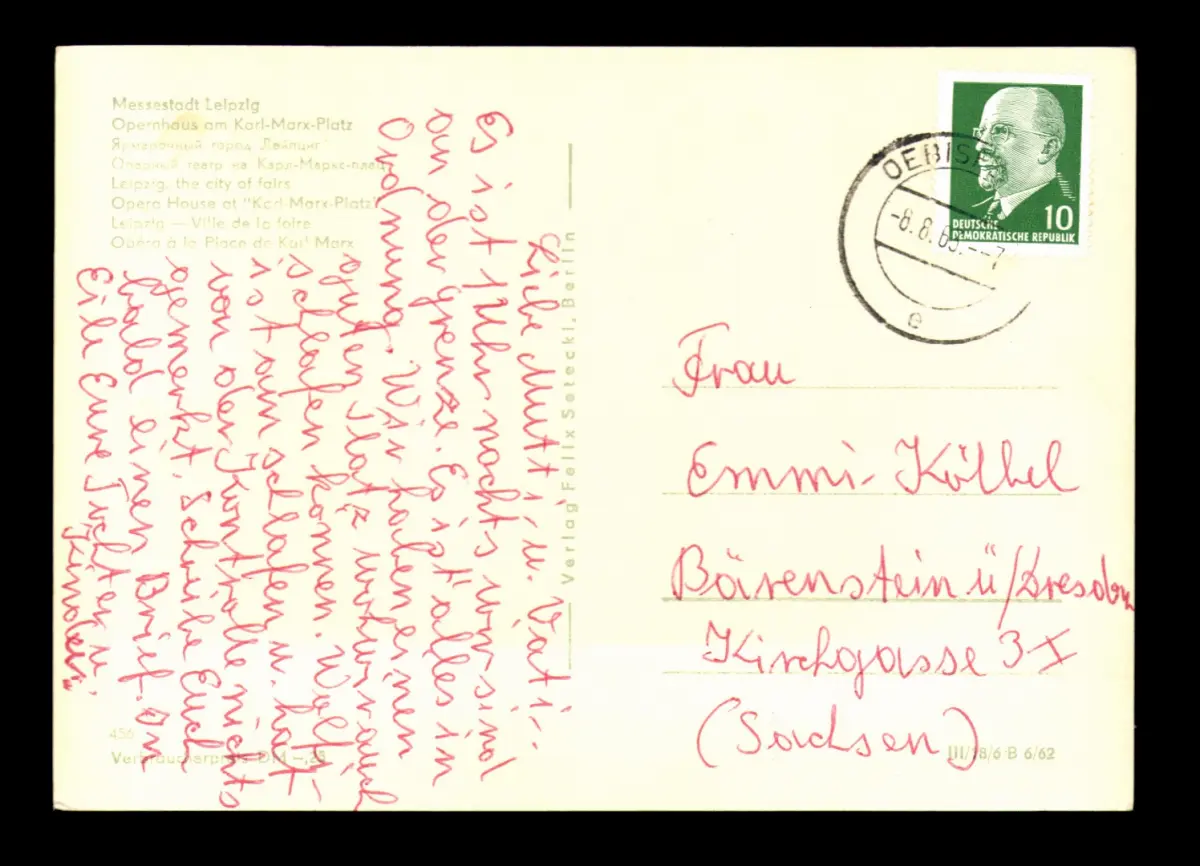 Messestadt Leipzig
Opernhaus am Karl-Marx-Platz
Ярмарочный город Лейпциг
Оперный театр на Карл-Маркс-плац
Leipzig, the city of fairs
Opera House at "Karl-Marx-Platz"
Leipzig — Ville de la foire
Opéra à la Place de Karl Marx
Liebe Mutti u. Vati.
Es ist 1 Uhr nachts wir sind
an der Grenze. Es ist alles in
Ordnung. Wir haben einen
guten Platz wo wir auch
schlafen können. Wolf-
ist am schlafen u. hat
von der Kontrolle nichts
gemerkt. Schreibe Euch
bald einen Brief. An
Eile Eure Tochter u.
Kinder.
Verlag Felix Setecki, Berlin
OEBISF
-8.8.65.--7
e
10
DEUTSCHE
DEMOKRATISCHE REPUBLIK
Frau
Emmi Kölbel
Bärenstein ü/Dresden
Kirchgasse 3
(Sachsen)
456
Verbraucherpreis DM -,23
III/18/6 B 6/62